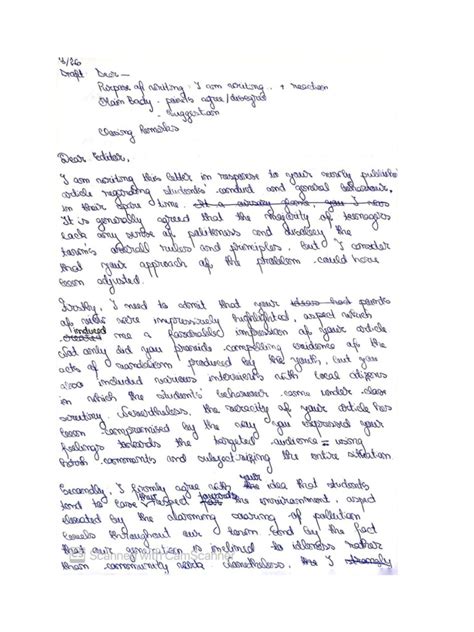 Draft Dear —
Purpose of writing : I am writing.. + reaction
Main Body - points agree/disagree
- suggestion
Closing Remarks
Dear Editor,
I am writing this letter in response to your newly publishe
article regarding students' conduct and general behaviour,
in their spare time. you I
It is generally agreed that the majority of teenagers
lack any sense of politeness and disobey the
town's overall rules and principles, but I consider
that your approach of the problem could have
been adjusted.
Firstly, I need to admit that your ideas had points
of were impressively highlighted, aspect which
induced
created me a favorable impression of your article
Not only did you provide compelling evidence of the
acts of vandalism produced by the youth, but you
also included various interviews with local citizens
in which the students' behaviour came under close
scrutiny. Nevertheless, the veracity of your article has
been compromised by the way you expressed your
feelings towards the targeted audience = using
harsh comments and subject-sizing the entire situation
Secondly, I firmly agree with the your idea that students
tend to lose their respect towards the environment, aspect
elevated by the alarming soaring of pollution
levels throughout our town and by the fact
that our generation is inclined to idleness rather
than community work Nonetheless, the I strongly
Scanned with CamScanner